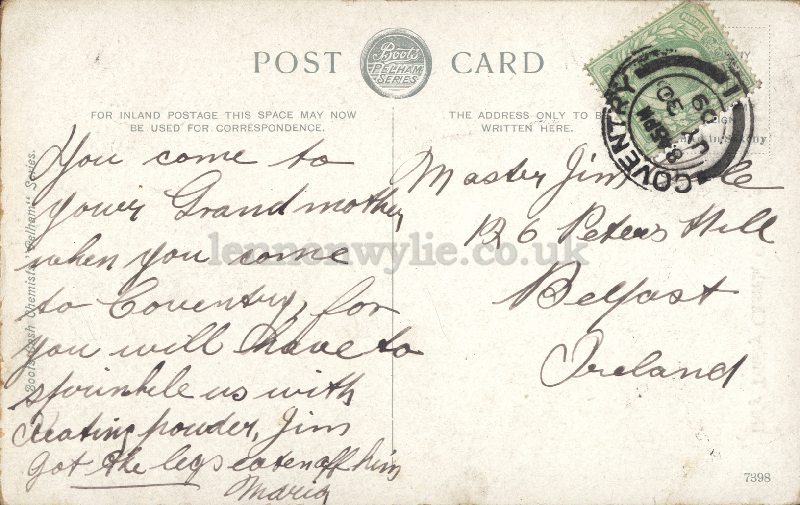 POST CARD
Boots
PELHAM
SERIES
FOR INLAND POSTAGE THIS SPACE MAY NOW
BE USED FOR CORRESPONDENCE.
THE ADDRESS ONLY TO
WRITTEN HERE.
COVENTRY
JY 30
09
You come to
your Grandmother
when you come
to Coventry, for
you will have to
sprinkle us with
Keating powder, Jim
got the legs eaten off him
Maria
Master Jim
126 Peters Hill
Belfast
Ireland
Boots Cash Chemists "Pelham" Series.
lennonwylie.co.uk
7398